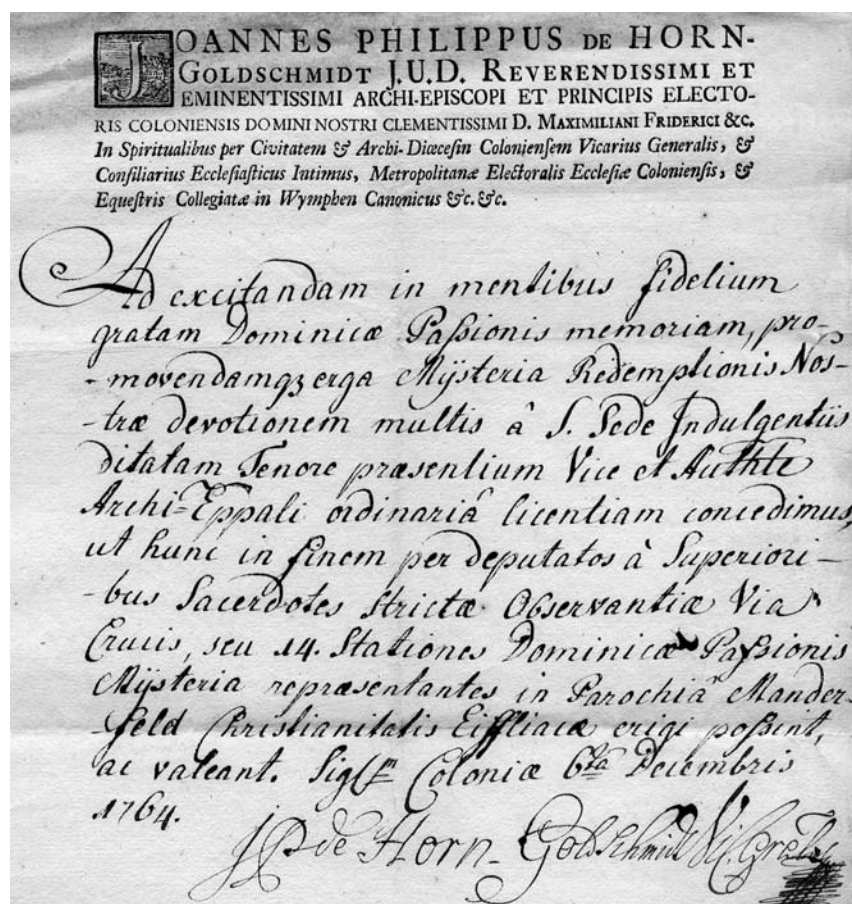 JOANNES PHILIPPUS DE HORN-
GOLDSCHMIDT J.U.D. REVERENDISSIMI ET
EMINENTISSIMI ARCHI-EPISCOPI ET PRINCIPIS ELECTO-
RIS COLONIENSIS DOMINI NOSTRI CLEMENTISSIMI D. MAXIMILIANI FRIDERICI &c.
In Spiritualibus per Civitatem & Archi-Diœcesin Coloniensem Vicarius Generalis, &
Consiliarius Ecclesiasticus Intimus, Metropolitanæ Electoralis Ecclesiæ Coloniensis, &
Equestris Collegiatæ in Wymphen Canonicus &c. &c.
Ad excitandam in mentibus fidelium
gratam Dominicæ Passionis memoriam, pro-
-movendamqз erga Mÿsteria Redemptionis Nos-
-træ devotionem multis â S. Sede Indulgentiis
ditatam Tenore præsentium Vice et Authte
Archi=Eppali ordinariâ licentiam concedimus,
ut hunc in finem per deputatos à Superiori-
-bus Sacerdotes Strictæ Observantiæ Via
Crucis, seu 14. Stationes Dominicæ Passionis
Mÿsteria repræsentantes in Parochiâ Mander-
-feld Christianitatis Eiffliacæ erigi possent,
ac valeant. Sigl̄m Coloniæ 6ta Decembris
1764.
JP de Horn-Goldschmidt